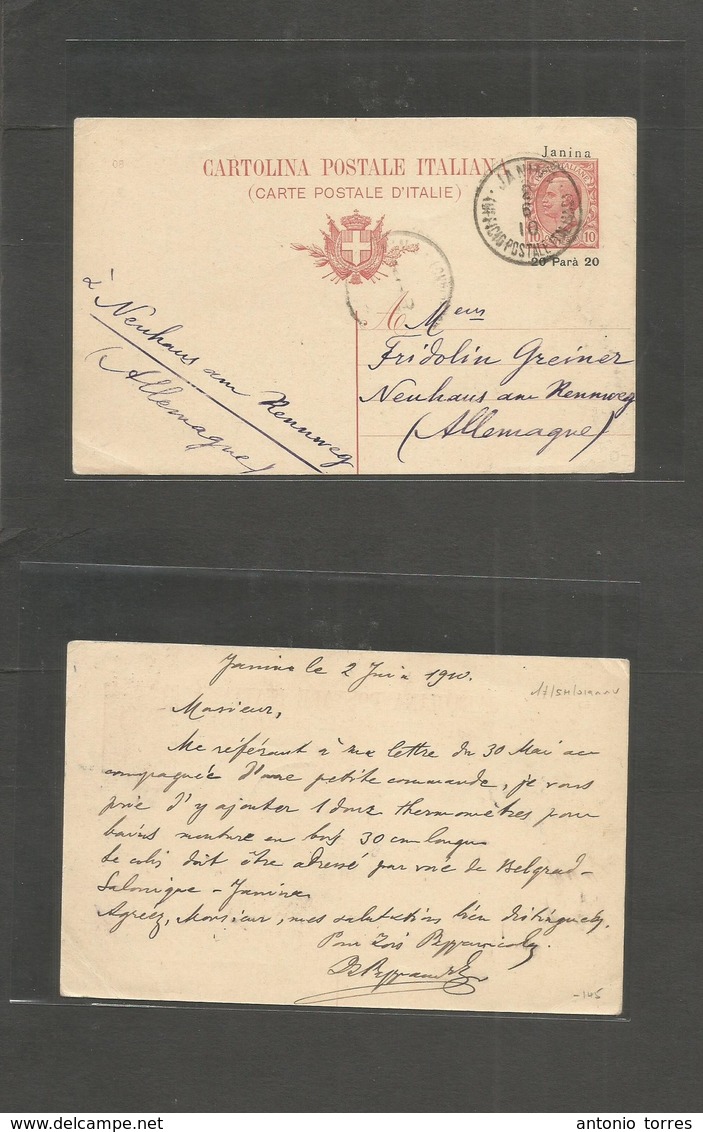 Janina
CARTOLINA POSTALE ITALIAN
(CARTE POSTALE D'ITALIE)
JANINA
UFFICIO POSTALE ITALIANO
10 10
20 Parà 20
A Meurs
Fridolin Greiner
Neuhaus am Rennweg
(Allemagne)
à Neuhaus am Rennweg
(Allemagne)
Janina le 2 Juin 1910.
Monsieur,
Me référant à ma lettre du 30 Mai ac
compagnée d'une petite commande, je vous
prie d'y ajouter 1 douz thermomètres pour
bains monture en bois 30 cm longs
Le colis doit être adressé par voie de Belgrad-
Salonique - Janina
Agréez, Monsieur, mes salutations bien distinguées.
Pour
-145
antonio torres